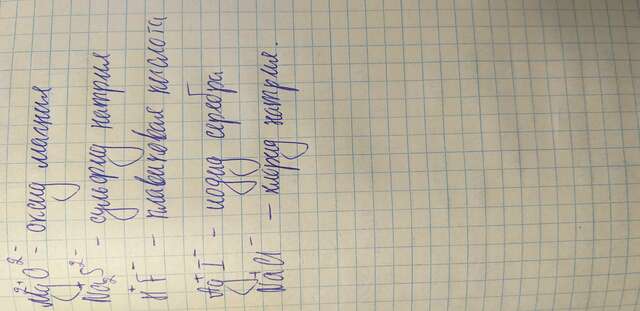 Mg²⁺O²⁻ - оксид магния
Na₂⁺S²⁻ - сульфид натрия
H⁺F⁻ - плавиковая кислота
Ag⁺I⁻ - иодид серебра
Na⁺Cl⁻ - хлорид натрия.